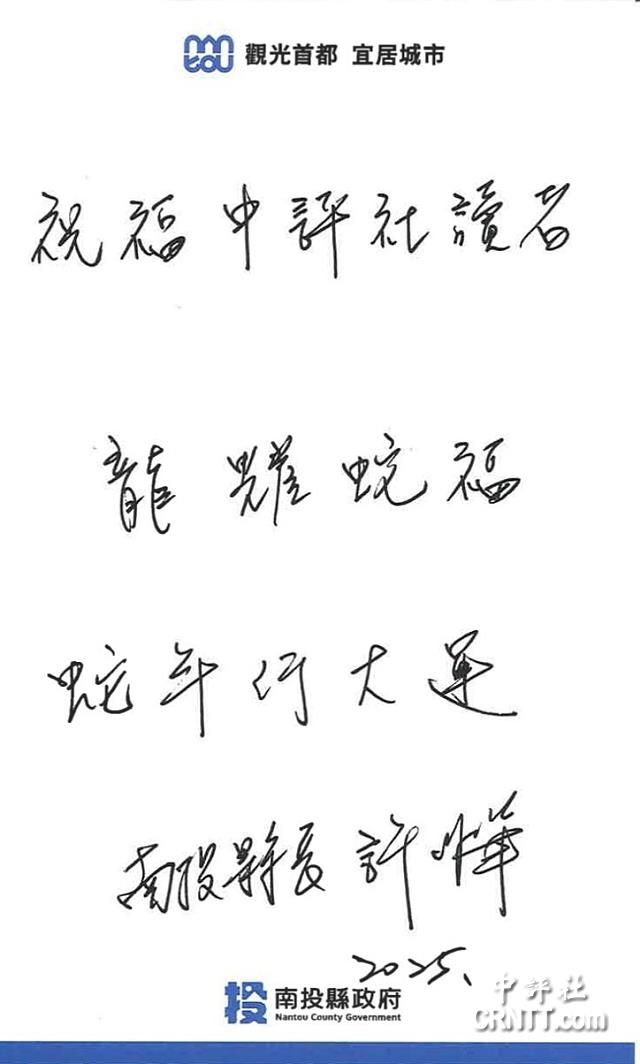 觀光首都 宜居城市
祝福中評社讀者
龍耀蛇福
蛇年行大運
南投縣長 許淑華
2025.
投 南投縣政府
Nantou County Government
中評社
CRNTT.com